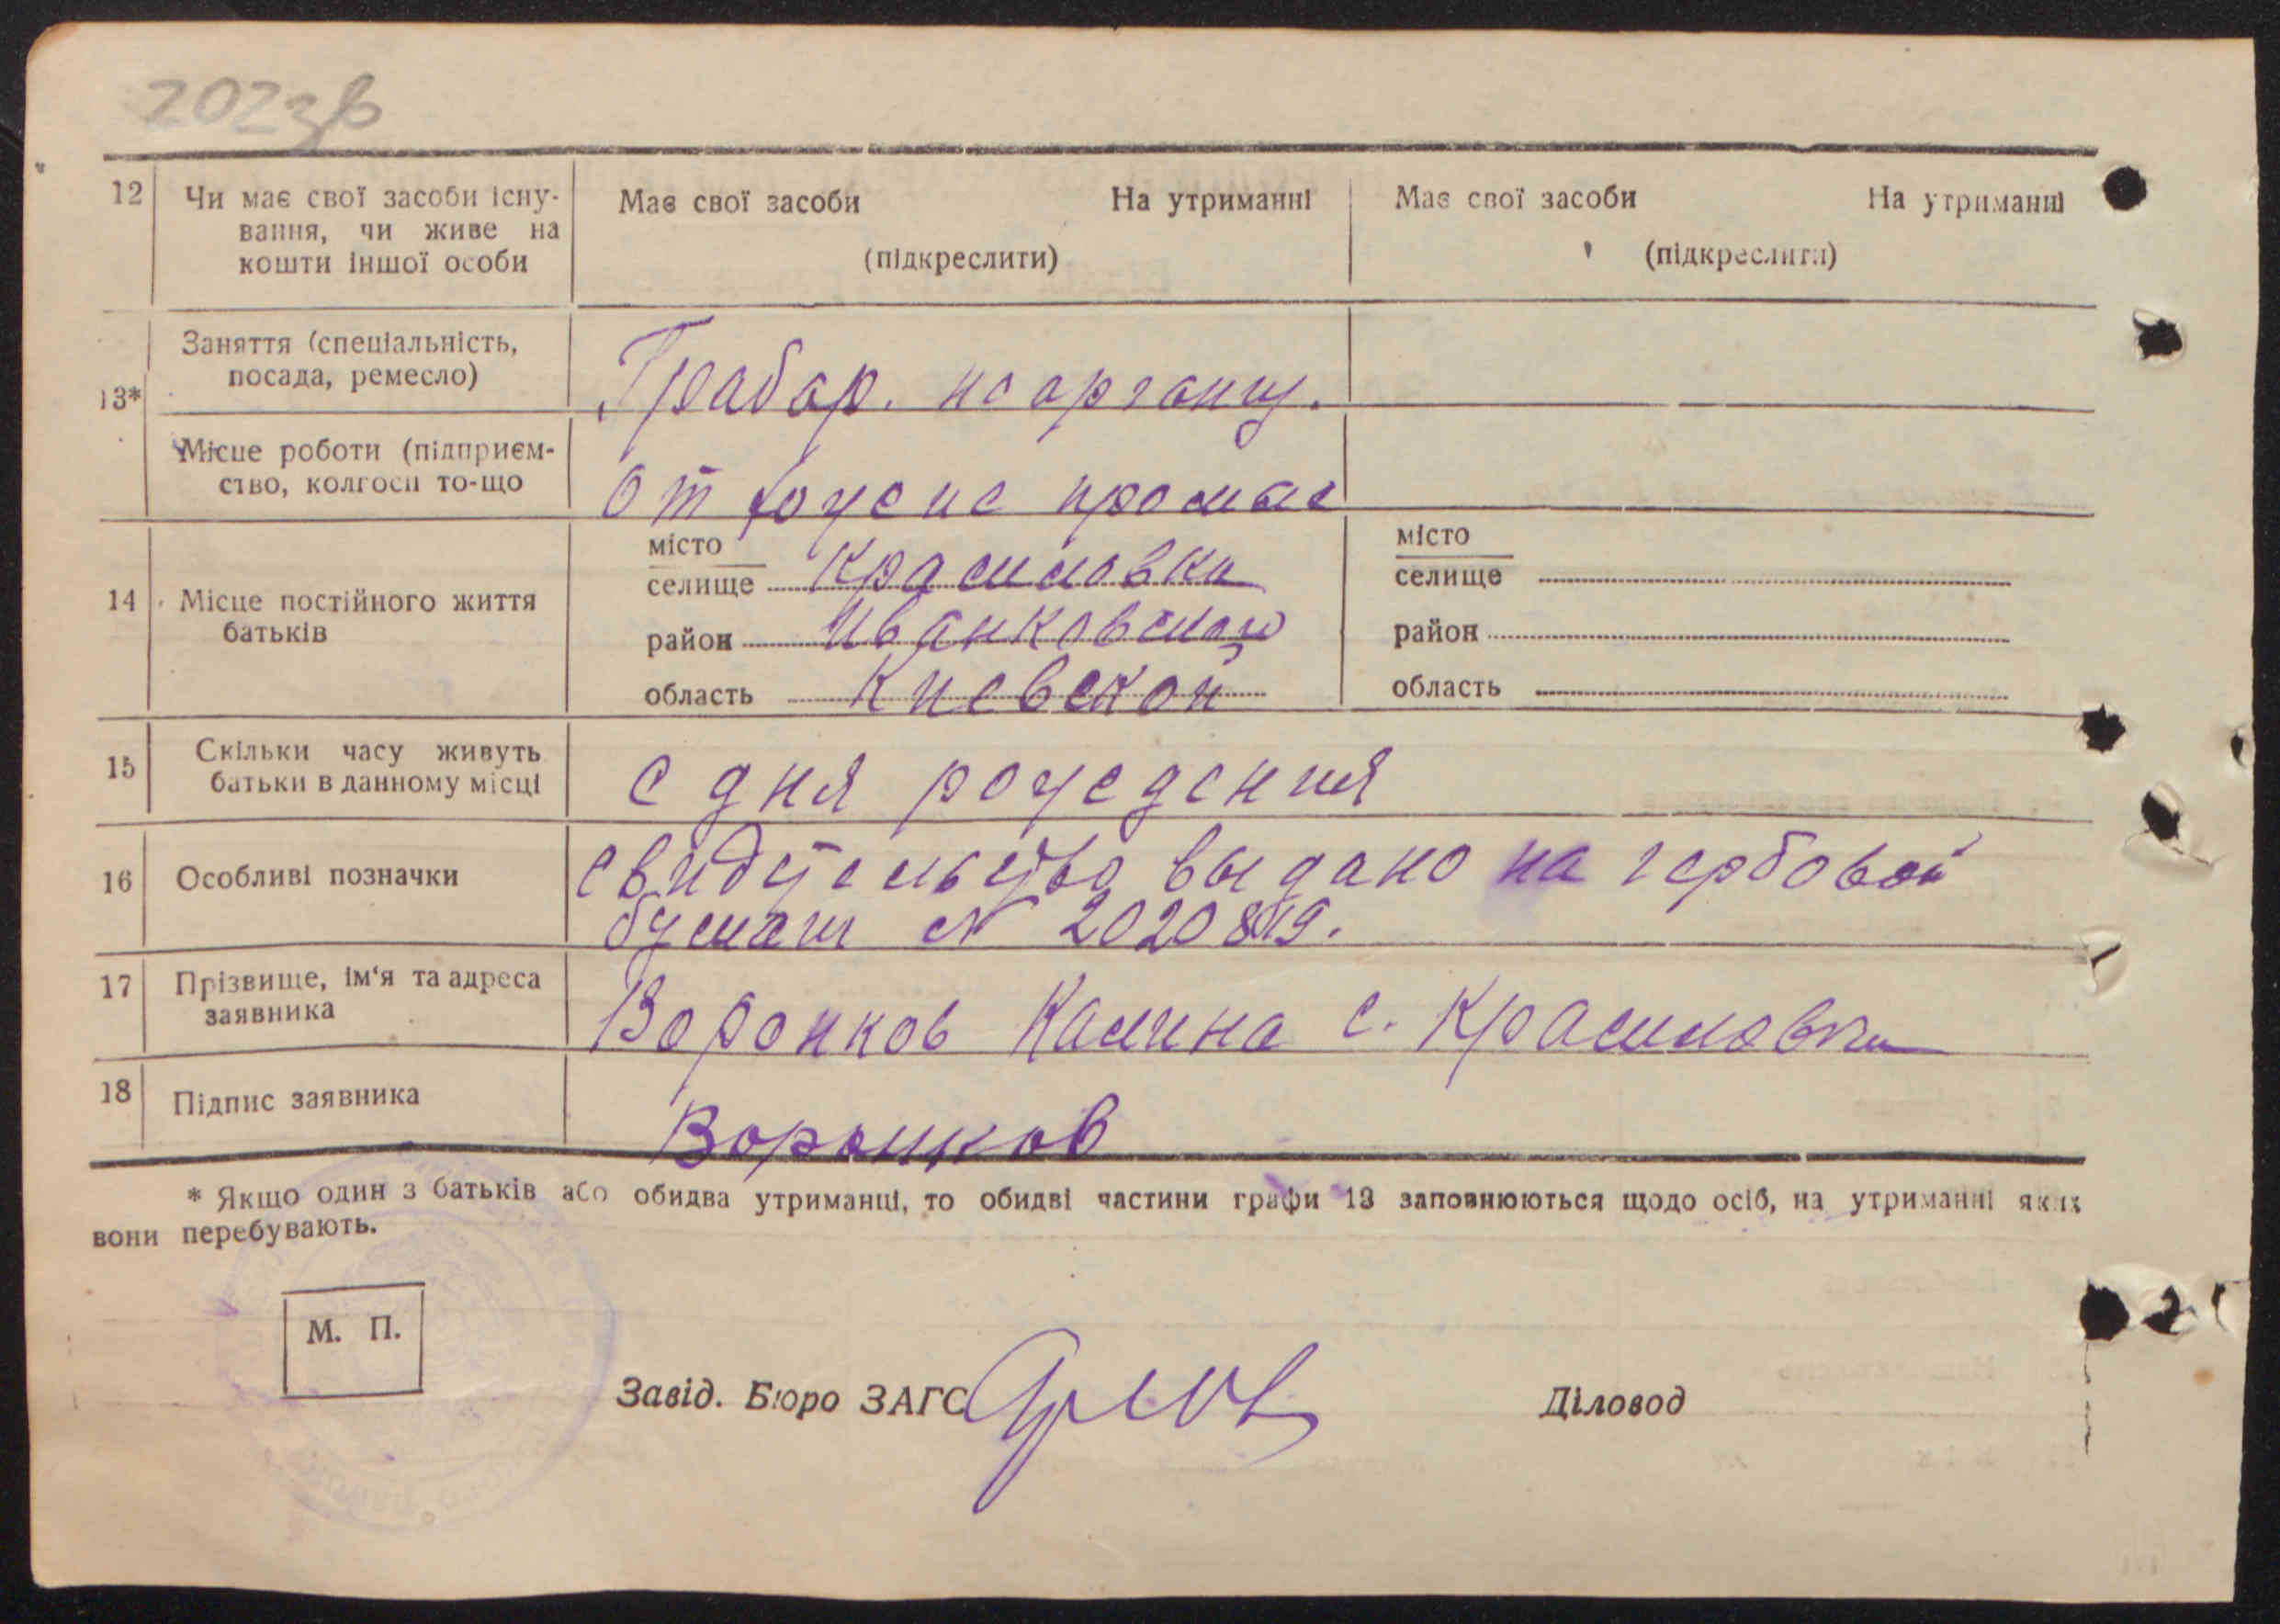 202зв
12 Чи має свої засоби існу-
вання, чи живе на
кошти іншої особи
Має свої засоби На утриманні
(підкреслити)
Має свої засоби На утриманні
(підкреслити)
13*
Заняття (спеціальність,
посада, ремесло)
Грабар. неорганиз.
Місце роботи (підприєм-
ство, колгосп то-що
От
14 Місце постійного життя
батьків
місто
селище Крашиловки
район Иванковского
область Киевской
місто
селище
район
область
15 Скільки часу живуть
батьки в данному місці
с дня рождения
16 Особливі позначки
свидетельство выдано на гербовой
бумаги №
17 Прізвище, ім'я та адреса
заявника
Воронков Калина с. Крашиловки
18 Підпис заявника
Воронков
* Якщо один з батьків або обидва утриманці, то обидві частини графи 13 заповнюються щодо осіб, на утриманні яких
вони перебувають.
М. П.
Завід. Бюро ЗАГС
Діловод